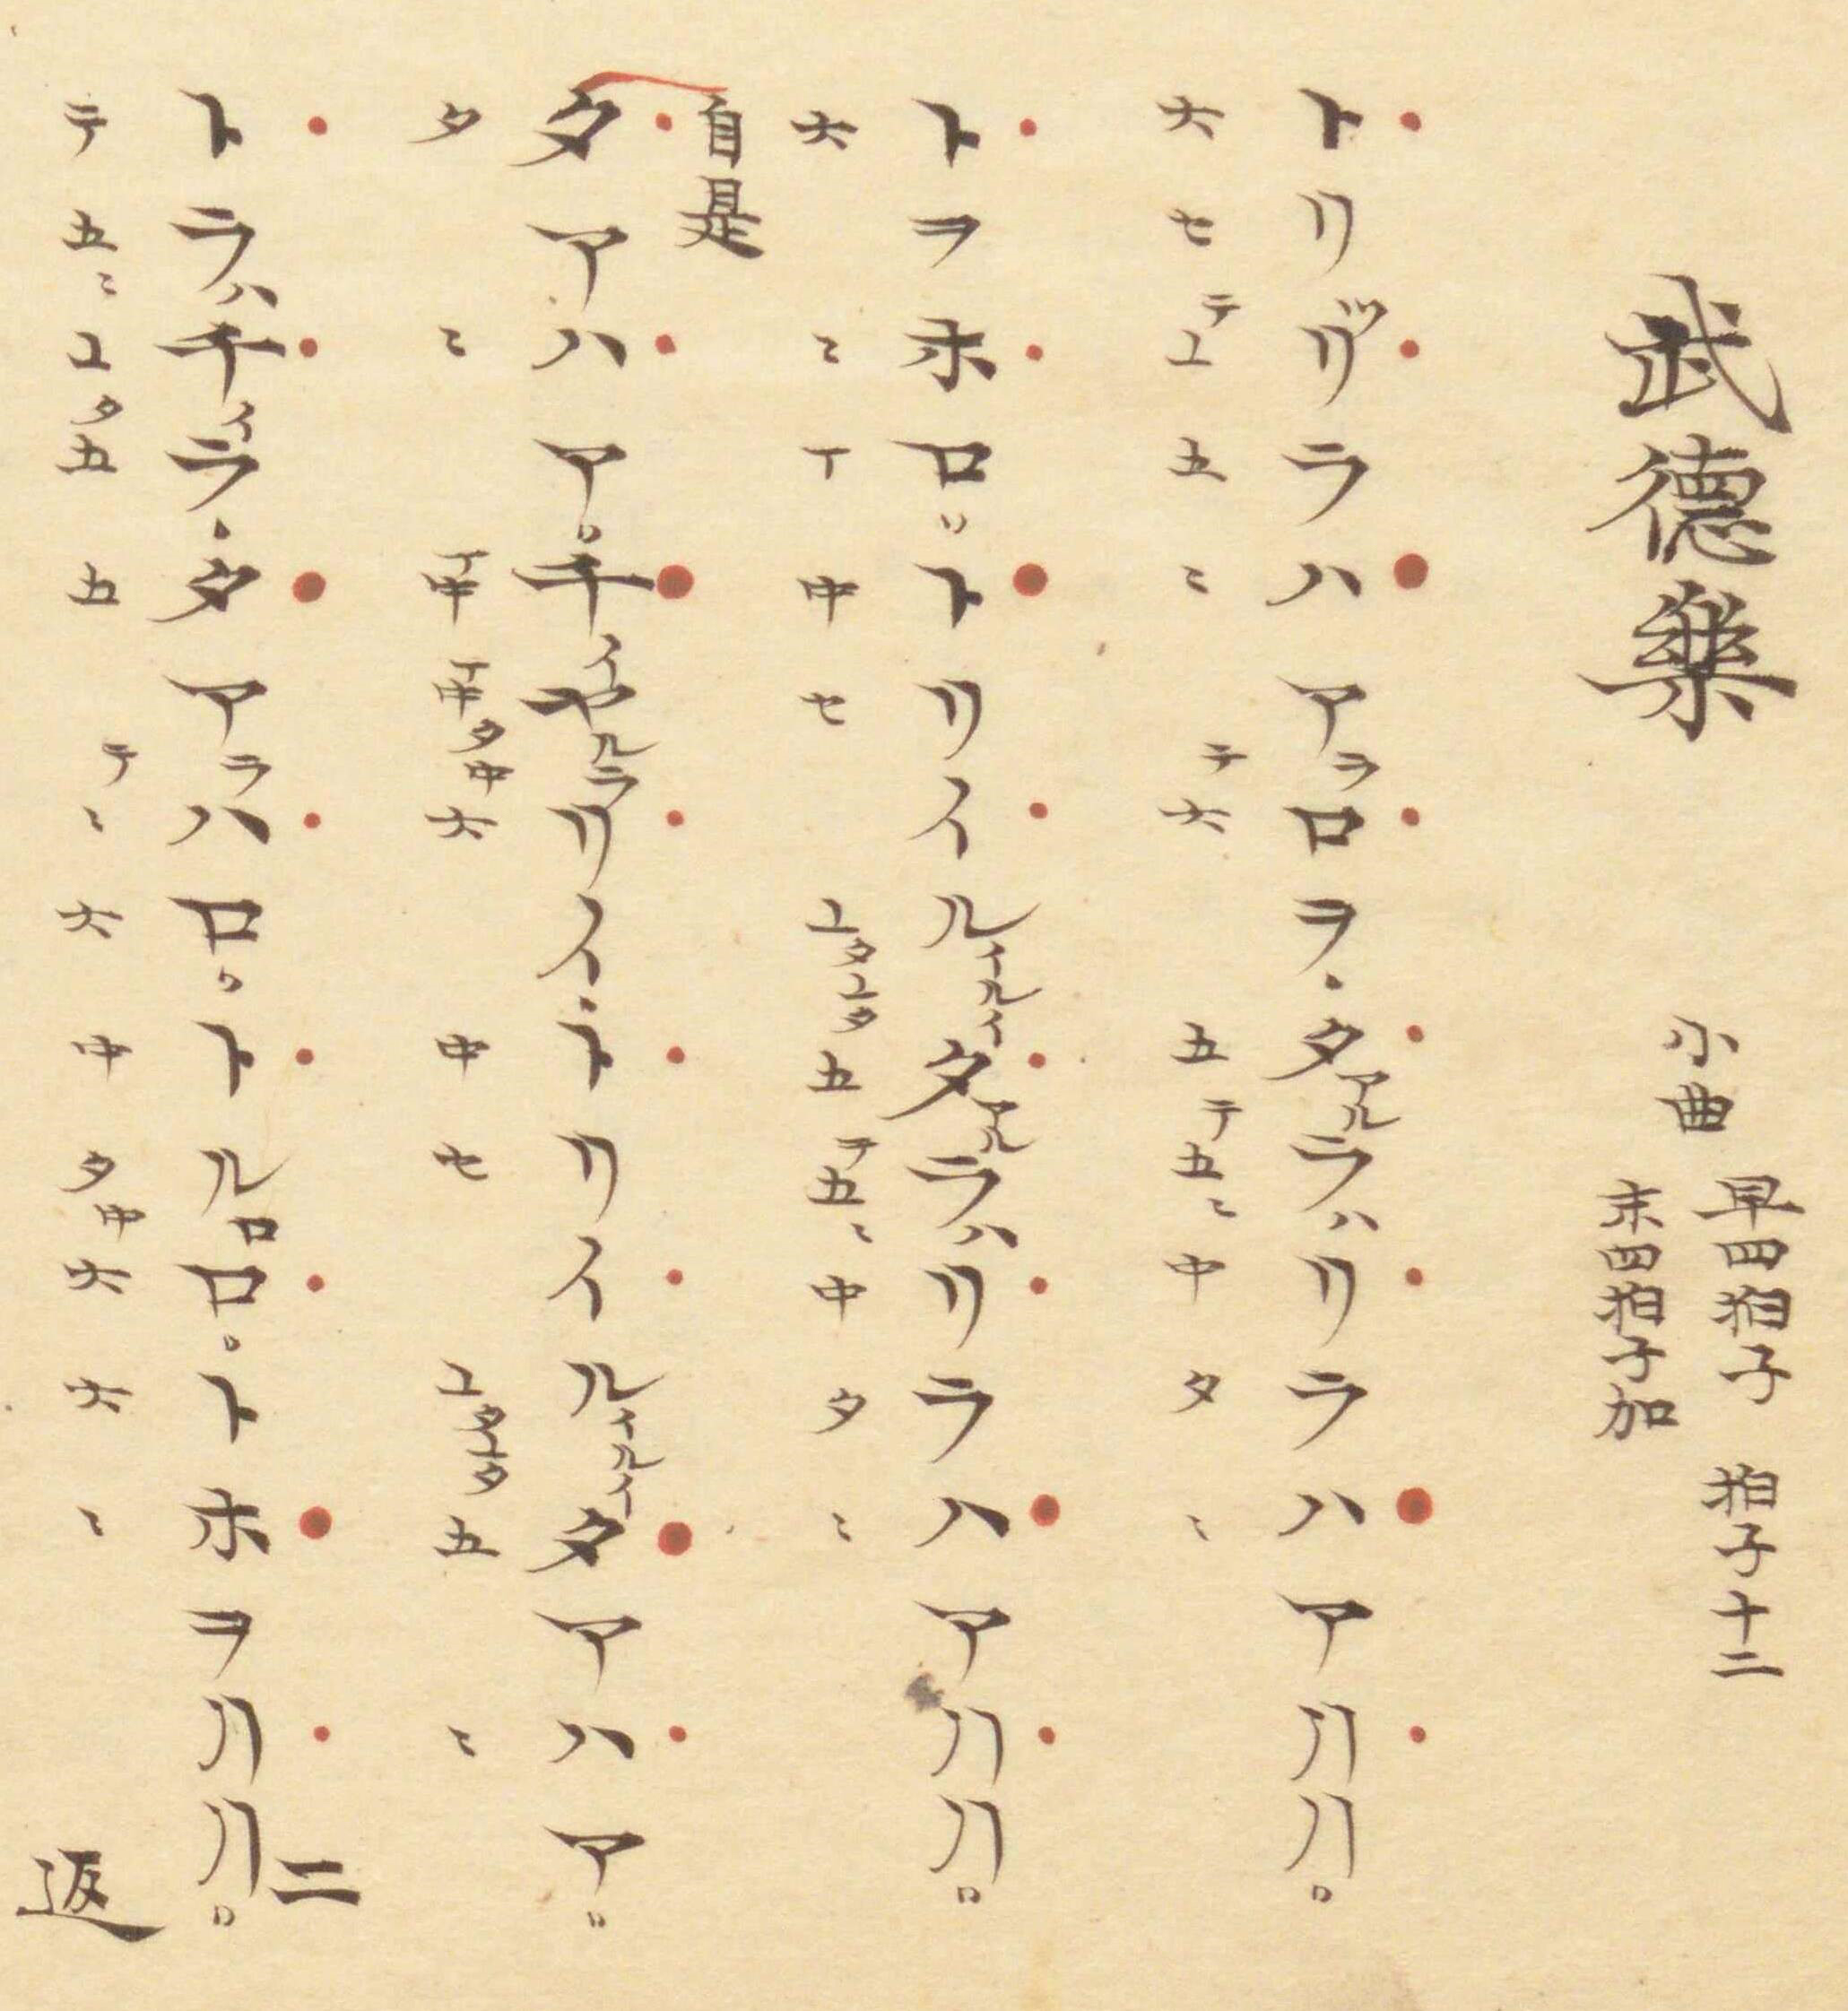 武德樂
小曲 早四拍子 拍子十二
末四拍子加
トリリッラハアラロヲタアルラハリラハアリリ
六セテユ五ミテ六五テ五ミ中タミ
トヲホロトリイルイルイタアルラハリラハアリリ
六ミ丁中セユタユタ五テ五ミ中タミ
自是
タアハアチイヤルラリイトリイルイルイタアハア
タミ丁中丁中タ中六中セユタユタ五ミ
トラハチイラタアラハロトルロロトホヲリリ
テ五ミユタ五五テミ六中タ中六六ミ
二返